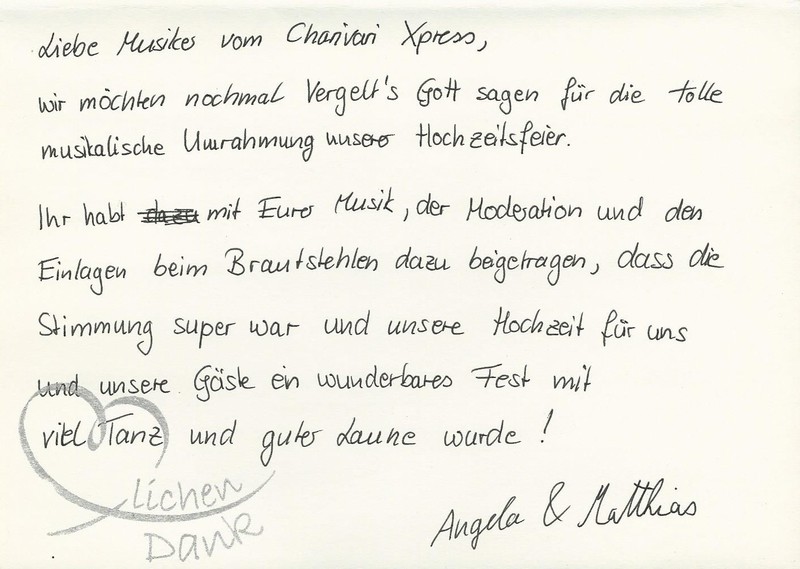 Liebe Musiker vom Charivari Xpress,
wir möchten nochmal Vergelt's Gott sagen für die tolle
musikalische Umrahmung unserer Hochzeitsfeier.
Ihr habt mit Eurer Musik, der Moderation und den
Einlagen beim Brautstehlen dazu beigetragen, dass die
Stimmung super war und unsere Hochzeit für uns
und unsere Gäste ein wunderbares Fest mit
viel Tanz und guter Laune wurde!
lichen
Dank
Angela & Matthias